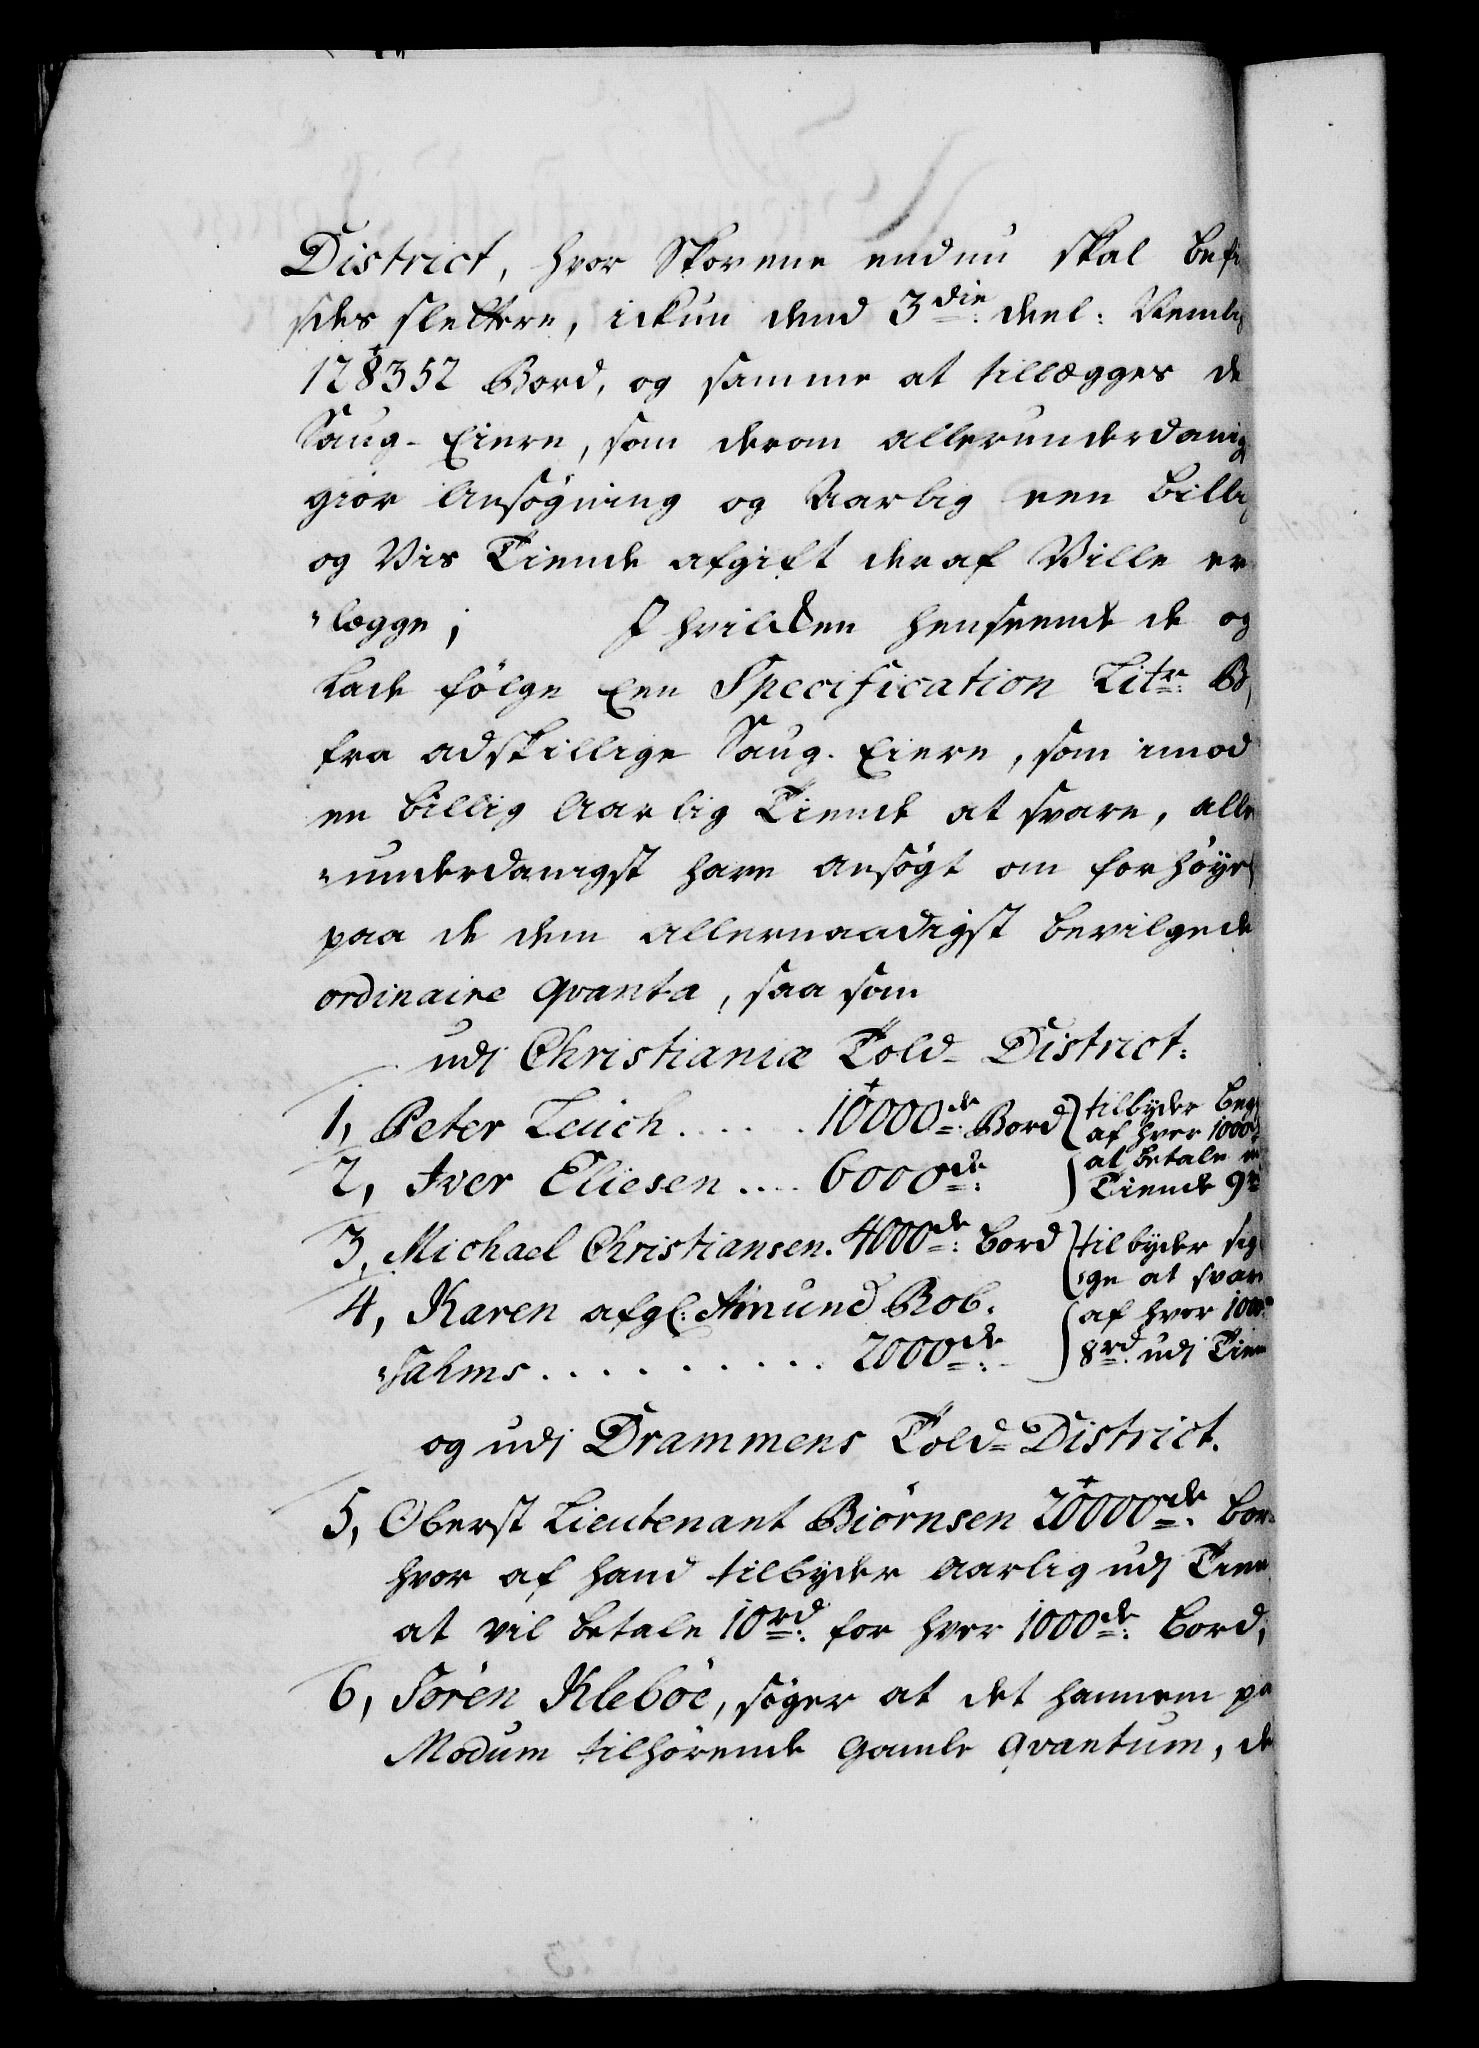 District, hvor Skovene endnu skal befin
des slettere, ickun dend 3die deel: Nemlig
128352 Bord, og samme at tillægges de
Saug-Eiere, som derom allerunderdanigst
giør Ansøgning og Aarlig een billig
og Vis Tiende afgift deraf Ville er
"lægge; I hvilcken henseende de og
lade følge Een Specification Litr: B,
fra adskillige Saug-Eiere, som imod
en billig Aarlig Tiende at svare, aller
"underdanigst have ansøgt om forhøyelse
paa de dem allernaadigst bevilgede
ordinaire qvanta, saa som
udj Christiania Told-District:
1, Peter Leuch ..... 10000de Bord } tilbyder beg
af hver 1000de
2, Iver Eliesen .... 6000de: } at betale
Tiende 9rd
3, Michael Christiansen. 4000de: Bord } tilbyder sig
"ge at svare
4, Karen afgl: Amund Rob. } af hver 1000de
"sahms ......... 2000de: } 8rd: udj Tien
og udj Drammens Told-District.
5, Oberst Lieutenant Biørnsen 20000de: bor
hvor af hand tilbyder aarlig udj Tien
at vil betale 10rd: for hver 1000de: bord,
6, Søren Kleböe, søger at det hannem på
Modum tilhørende gamle qvantum, de